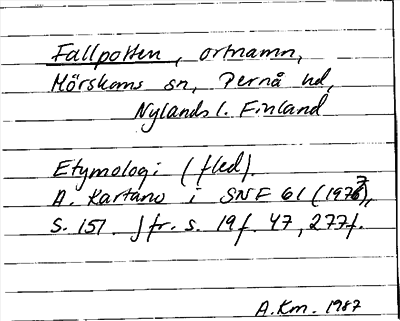 Fallpotten, ortnamn,
Mörskoms sn, Pernå hd,
Nylands l. Finland
Etymologi (fled).
A. Kartano i SNF 61 (1977),
S. 151. Jfr. s. 19f. 47, 277f.
A.Km. 1987